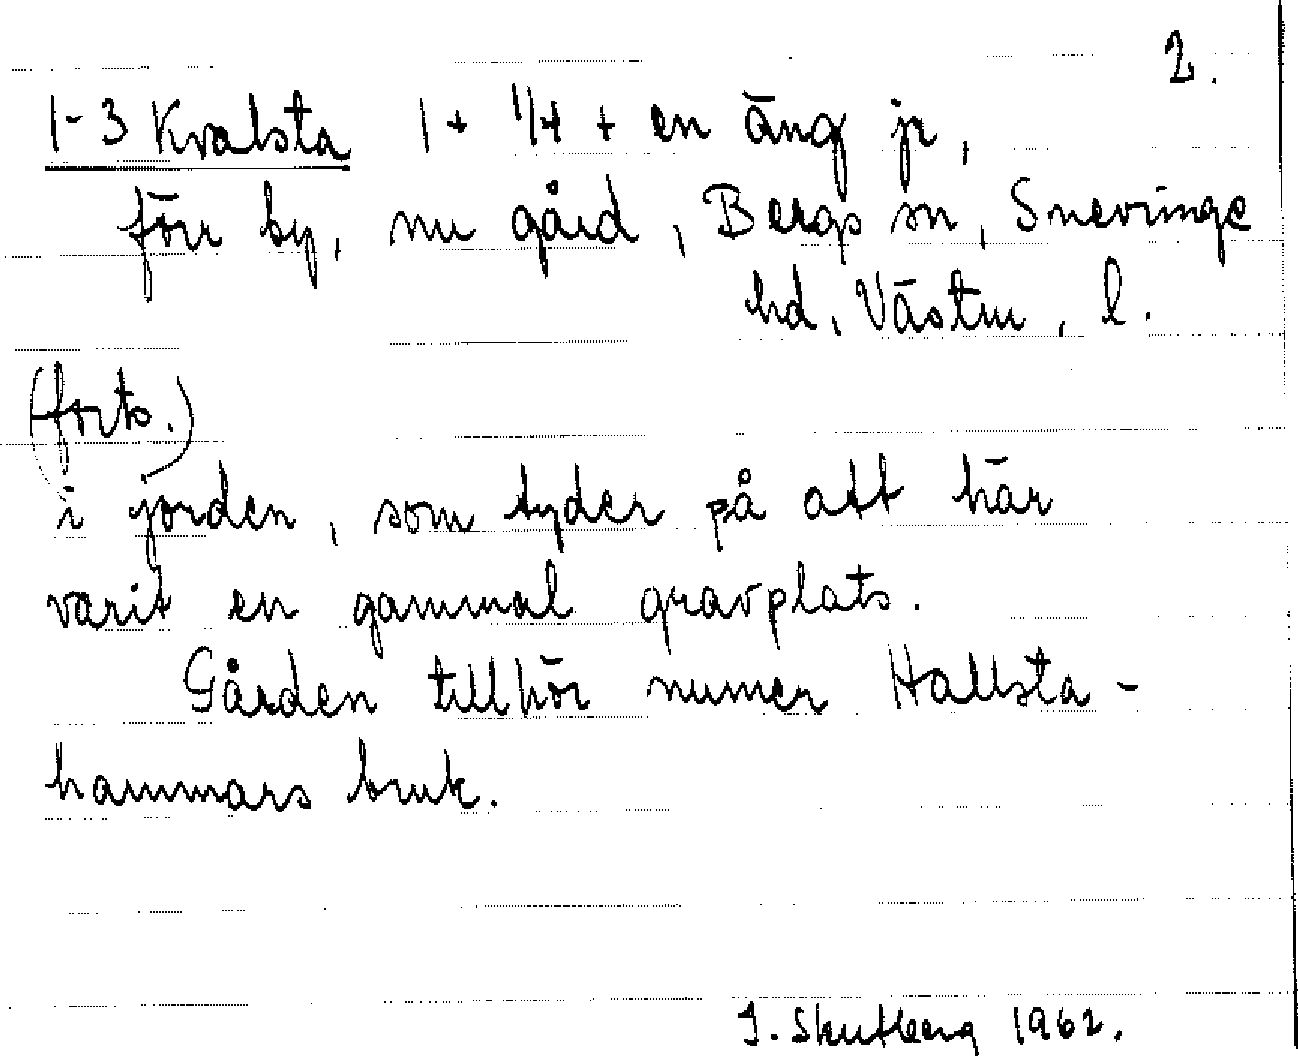 2.
1-3 Kvalsta 1 + 1/4 + en äng jr,
förr by, nu gård, Bergs sn, Snevringe
hd, Västm. l.
(forts.)
i jorden, som tyder på att här
varit en gammal gravplats.
Gården tillhör numer Hallsta-
hammars bruk.
I. Skutberg 1962.